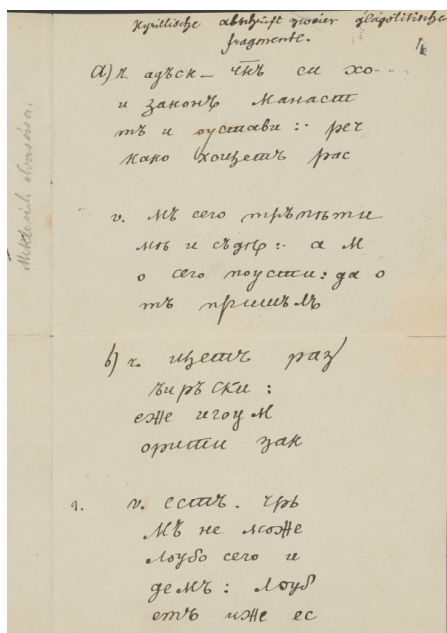 Kyrillische abschrift zweier glagolitische
fragmente.
a) r. адъск– чн҃ъ си хо-
и законъ манаст
тъ и оустави :· реч
како хощетъ рас
v. мъ сего тръпѣти
мѣ и съдѣ :· а м
о сего поусти : да о
тъ пришъмъ
b) r. щетъ раз
ъиръски :
еже игоум
орити зак
v. естъ . чрь
мъ не може
лоубо сего и
демъ : лоуб
етъ иже ес
Miklosich